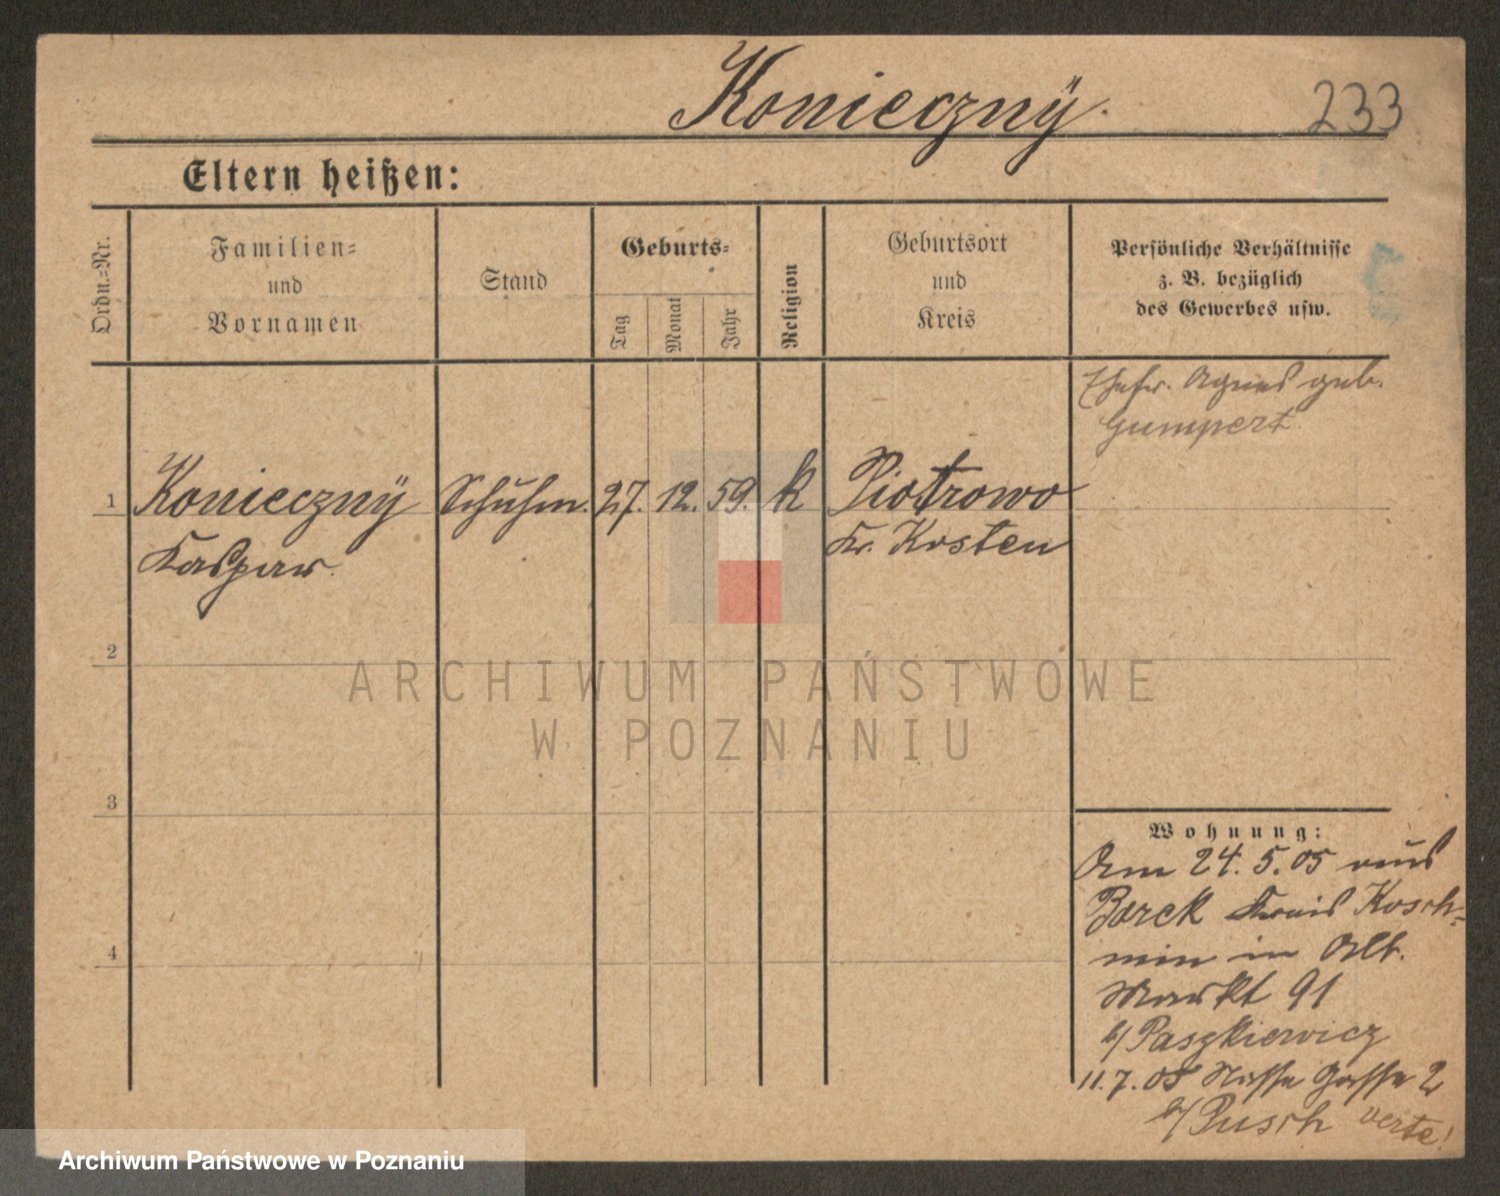 Koniecznÿ.
233
Eltern heißen:
Ordn.-Nr.
Familien-
und
Vornamen
Stand
Geburts-
Tag
Monat
Jahr
Religion
Geburtsort
und
Kreis
Persönliche Verhältnisse
z. B. bezüglich
des Gewerbes usw.
Ehefr. Agnes geb.
Gumpert
1 Koniecznÿ Schuhm. 27. 12. 59. k Piotrowo
Kaspar Kr. Kosten
2
3
4
Wohnung:
Am 24. 5. 05 aus
Borck Kreis Kosch-
min in Alt.
Markt 91
b/ Paszkiewicz
11. 7. 05 Nasse Gasse 2
b/ Pusch verte!
ARCHIWUM PAŃSTWOWE
W POZNANIU
Archiwum Państwowe w Poznaniu